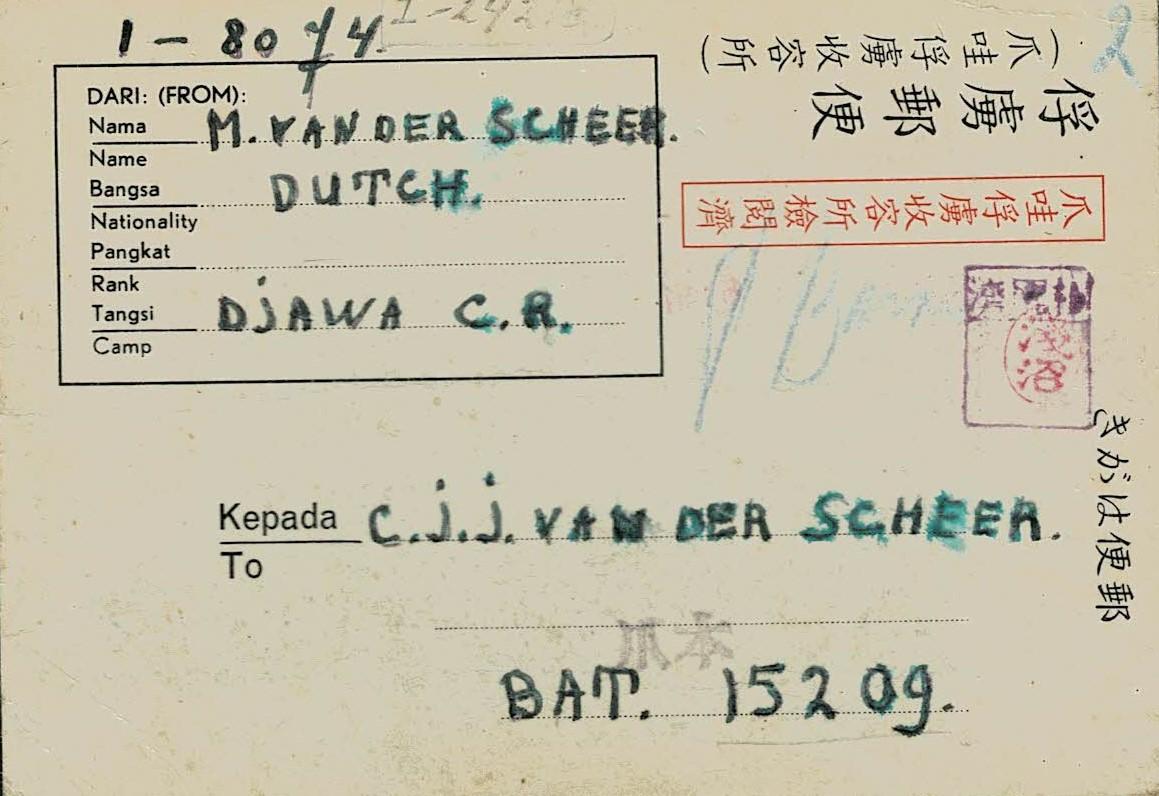 1 - 8074
DARI: (FROM):
Nama M. VAN DER SCHEER.
Name
Bangsa DUTCH.
Nationality
Pangkat
Rank
Tangsi DJAWA C.R.
Camp
(爪哇俘虜收容所)
俘虜郵便
爪哇俘虜收容所檢閲濟
2
きがは便郵
Kepada C.J.J. VAN DER SCHEER.
To
BAT. 15209.